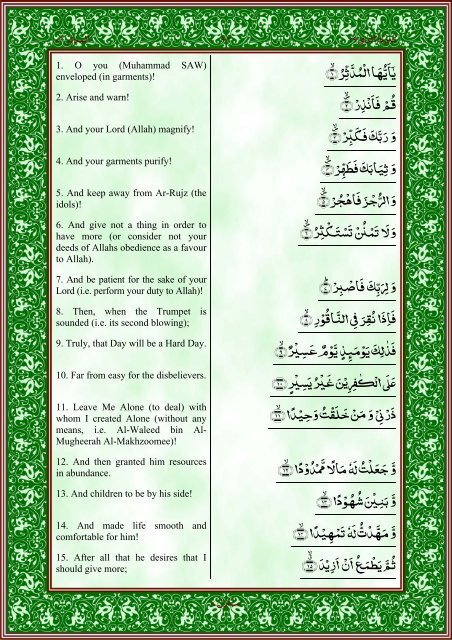 1. O you (Muhammad SAW)
enveloped (in garments)!
2. Arise and warn!
3. And your Lord (Allah) magnify!
4. And your garments purify!
5. And keep away from Ar-Rujz (the
idols)!
6. And give not a thing in order to
have more (or consider not your
deeds of Allahs obedience as a favour
to Allah).
7. And be patient for the sake of your
Lord (i.e. perform your duty to Allah)!
8. Then, when the Trumpet is
sounded (i.e. its second blowing);
9. Truly, that Day will be a Hard Day.
10. Far from easy for the disbelievers.
11. Leave Me Alone (to deal) with
whom I created Alone (without any
means, i.e. Al-Waleed bin Al-
Mugheerah Al-Makhzoomee)!
12. And then granted him resources
in abundance.
13. And children to be by his side!
14. And made life smooth and
comfortable for him!
15. After all that he desires that I
should give more;
يٰۤاَيُّهَا الْمُدَّثِّرُ ﴿۱﴾
قُمْ فَاَنْذِرْ ﴿۲﴾
وَ رَبَّكَ فَكَبِّرْ ﴿۳﴾
وَ ثِيَابَكَ فَطَهِّرْ ﴿۴﴾
وَ الرُّجْزَ فَاهْجُرْ ﴿۵﴾
وَ لَا تَمْنُنْ تَسْتَكْثِرُ ﴿۶﴾
وَ لِرَبِّكَ فَاصْبِرْ ﴿۷﴾
فَاِذَا نُقِرَ فِى النَّاقُوْرِ ﴿۸﴾
فَذٰلِكَ يَوْمَٮِٕذٍ يَّوْمٌ عَسِيْرٌ ﴿۹﴾
عَلَى الْكٰفِرِيْنَ غَيْرُ يَسِيْرٍ ﴿۱۰﴾
ذَرْنِىْ وَ مَنْ خَلَقْتُ وَحِيْدًا ﴿۱۱﴾
وَّ جَعَلْتُ لَهٗ مَالًا مَّمْدُوْدًا ﴿۱۲﴾
وَّ بَنِيْنَ شُهُوْدًا ﴿۱۳﴾
وَّ مَهَّدْتُّ لَهٗ تَمْهِيْدًا ﴿۱۴﴾
ثُمَّ يَطْمَعُ اَنْ اَزِيْدَ ﴿۱۵﴾